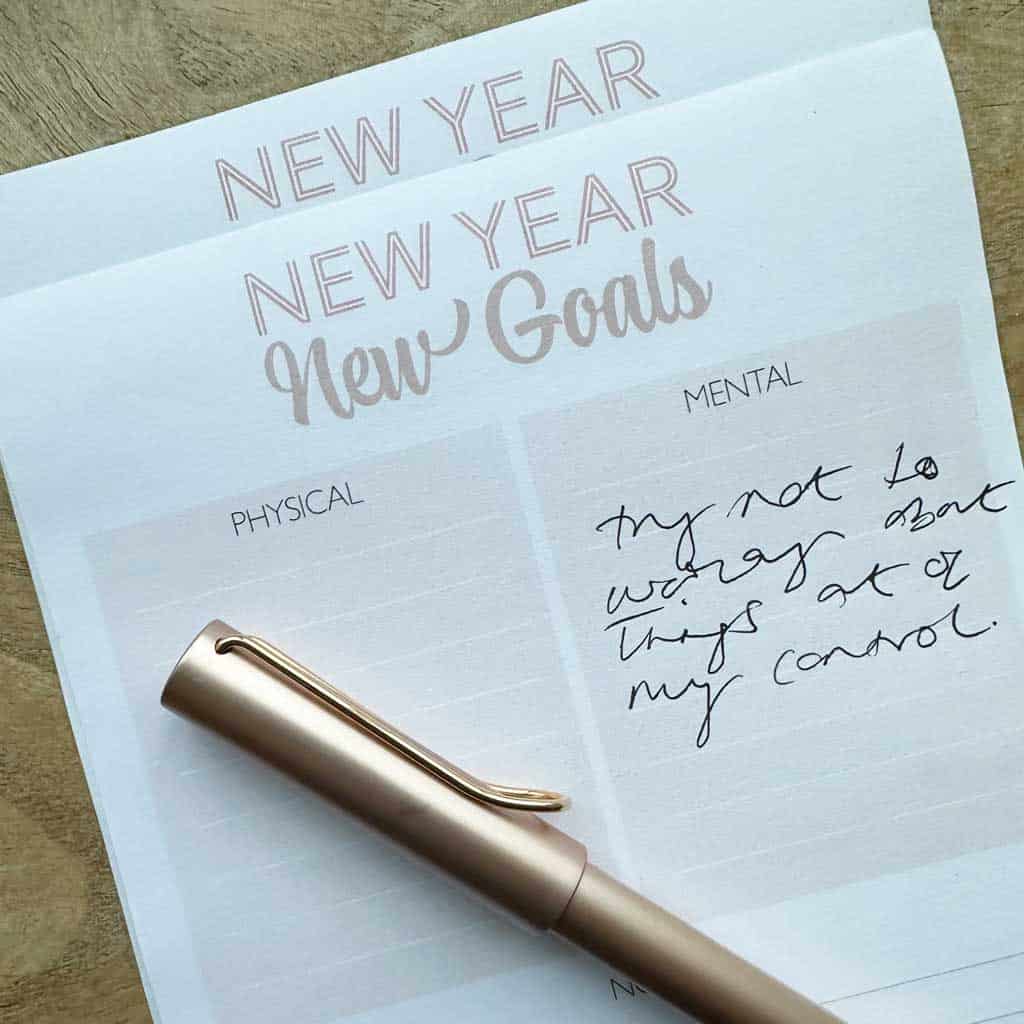 NEW YEAR
NEW YEAR
New Goals
PHYSICAL
MENTAL
try not to
worry about
things out of
my control.